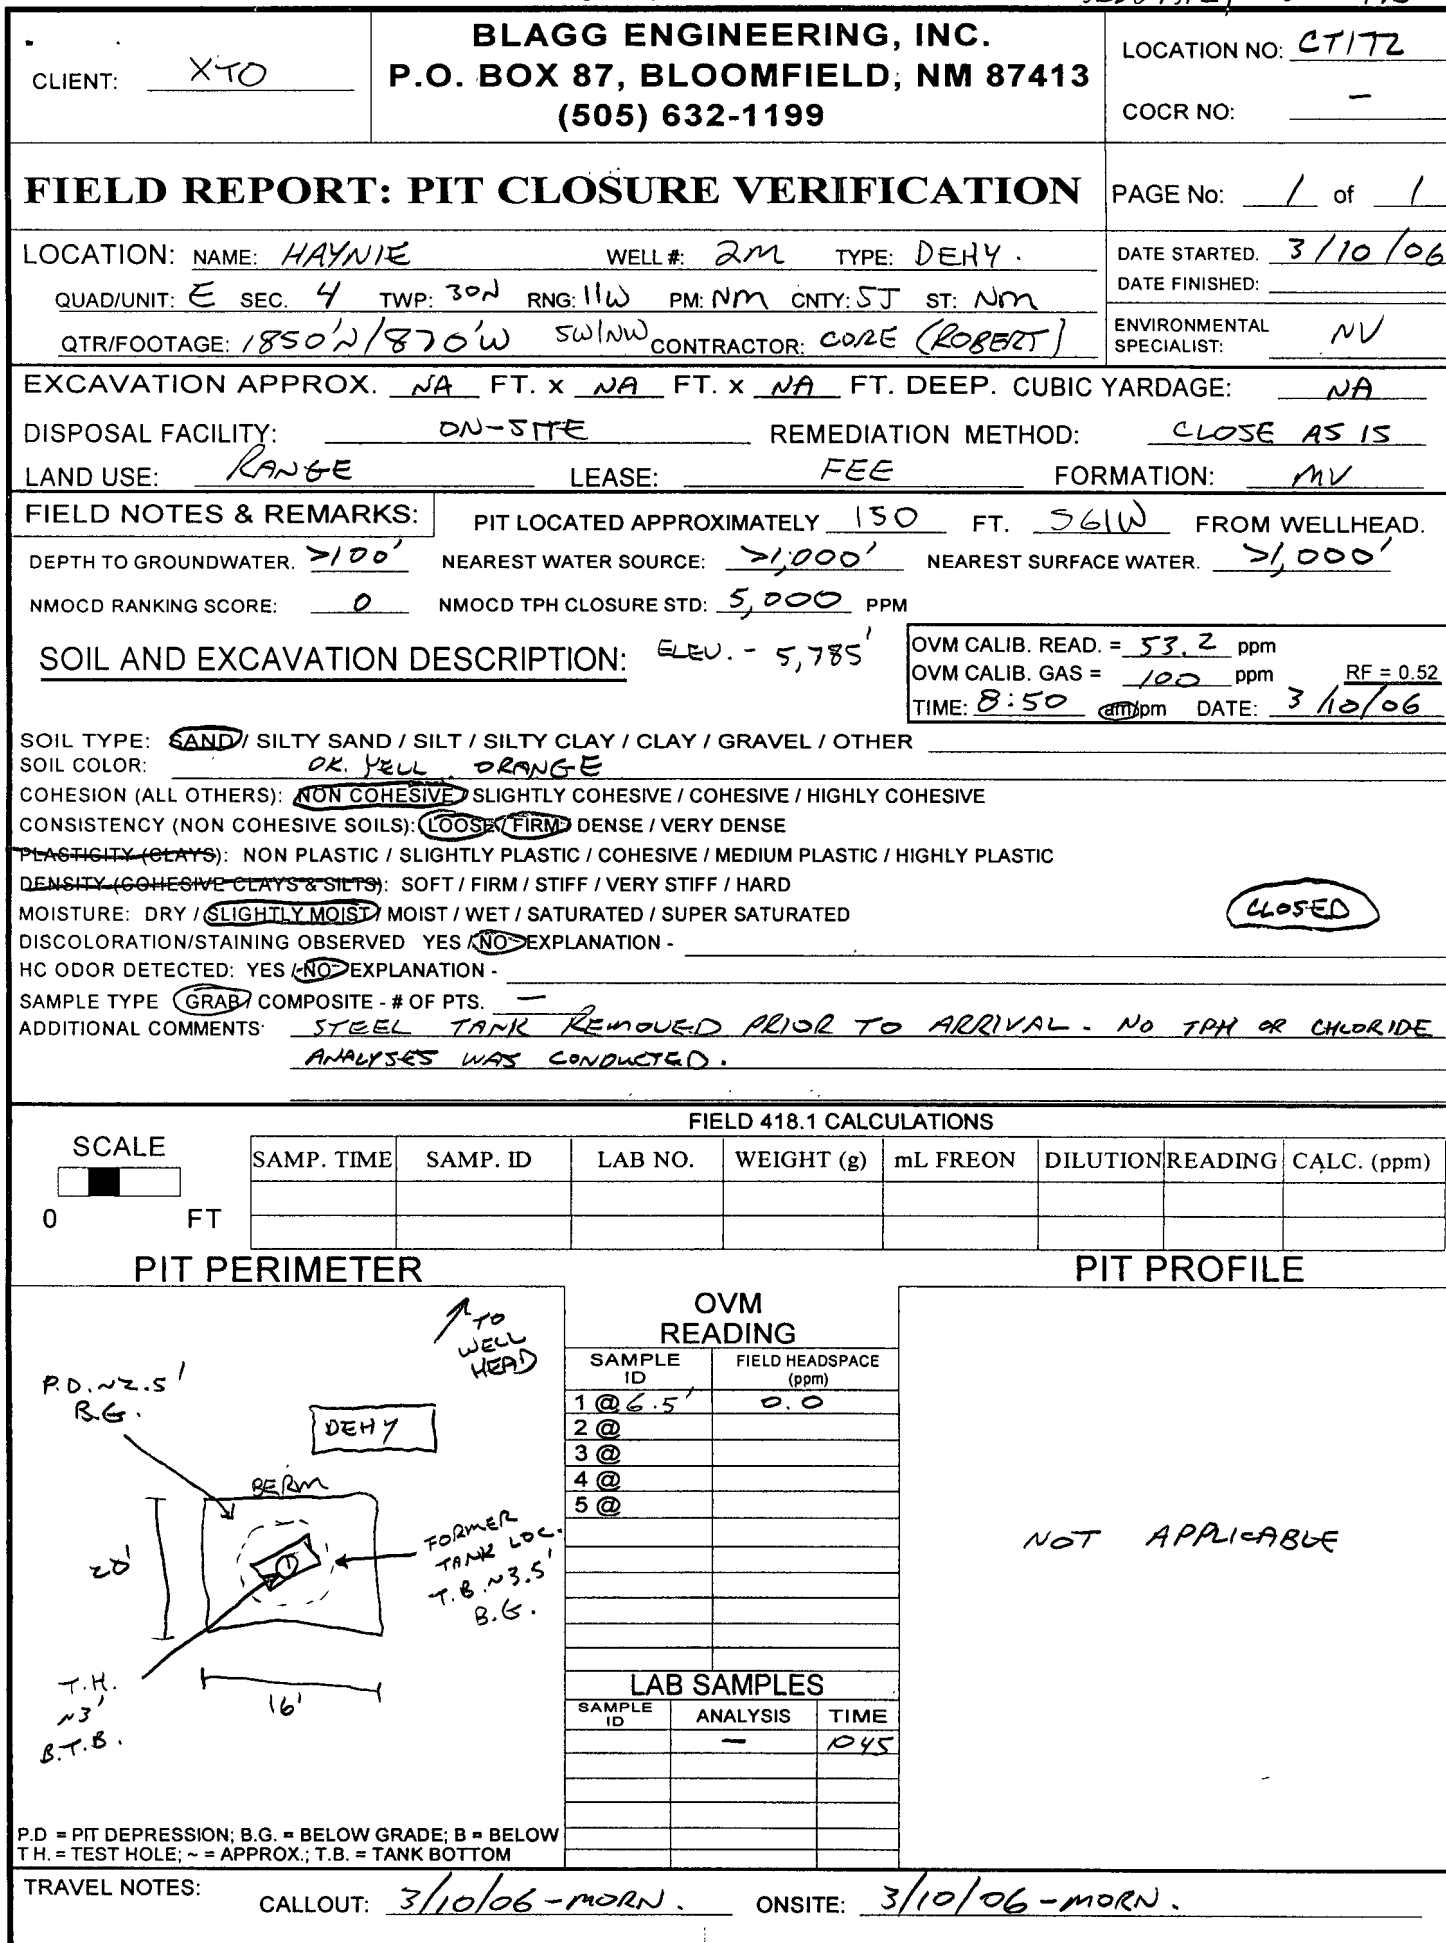 BLAGG ENGINEERING, INC.
P.O. BOX 87, BLOOMFIELD, NM 87413
(505) 632-1199
CLIENT: XTO
LOCATION NO: CT172
COCR NO: –
FIELD REPORT: PIT CLOSURE VERIFICATION
PAGE No: 1 of 1
LOCATION: NAME: HAYNIE WELL #: 2M TYPE: DEHY.
QUAD/UNIT: E SEC. 4 TWP: 30N RNG: 11W PM: NM CNTY: SJ ST: NM
QTR/FOOTAGE: 1850'N/870'W SW/NW CONTRACTOR: CORE (ROBERT)
DATE STARTED. 3/10/06
DATE FINISHED:
ENVIRONMENTAL SPECIALIST: NV
EXCAVATION APPROX. NA FT. x NA FT. x NA FT. DEEP. CUBIC YARDAGE: NA
DISPOSAL FACILITY: ON-SITE REMEDIATION METHOD: CLOSE AS IS
LAND USE: RANGE LEASE: FEE FORMATION: MV
FIELD NOTES & REMARKS: PIT LOCATED APPROXIMATELY 150 FT. S61W FROM WELLHEAD.
DEPTH TO GROUNDWATER. >100' NEAREST WATER SOURCE: >1,000' NEAREST SURFACE WATER. >1,000'
NMOCD RANKING SCORE: 0 NMOCD TPH CLOSURE STD: 5,000 PPM
SOIL AND EXCAVATION DESCRIPTION: ELEV. - 5,785'
OVM CALIB. READ. = 53.2 ppm
OVM CALIB. GAS = 100 ppm RF = 0.52
TIME: 8:50 am/pm DATE: 3/10/06
SOIL TYPE: SAND / SILTY SAND / SILT / SILTY CLAY / CLAY / GRAVEL / OTHER
SOIL COLOR: DK. YELL. ORANGE
COHESION (ALL OTHERS): NON COHESIVE / SLIGHTLY COHESIVE / COHESIVE / HIGHLY COHESIVE
CONSISTENCY (NON COHESIVE SOILS): LOOSE / FIRM / DENSE / VERY DENSE
PLASTICITY (CLAYS): NON PLASTIC / SLIGHTLY PLASTIC / COHESIVE / MEDIUM PLASTIC / HIGHLY PLASTIC
DENSITY (COHESIVE CLAYS & SILTS): SOFT / FIRM / STIFF / VERY STIFF / HARD
MOISTURE: DRY / SLIGHTLY MOIST / MOIST / WET / SATURATED / SUPER SATURATED
CLOSED
DISCOLORATION/STAINING OBSERVED YES / NO EXPLANATION -
HC ODOR DETECTED: YES / NO EXPLANATION -
SAMPLE TYPE GRAB / COMPOSITE - # OF PTS. –
ADDITIONAL COMMENTS STEEL TANK REMOVED PRIOR TO ARRIVAL. NO TPH OR CHLORIDE
ANALYSES WAS CONDUCTED.
FIELD 418.1 CALCULATIONS
SCALE
0 FT
SAMP. TIME SAMP. ID LAB NO. WEIGHT (g) mL FREON DILUTION READING CALC. (ppm)
PIT PERIMETER
TO WELL HEAD
P.D. ~2.5'
B.G.
DEHY
BERM
FORMER
TANK LOC.
T.B. ~3.5'
B.G.
20'
16'
T.H.
~3'
B.T.B.
P.D = PIT DEPRESSION; B.G. = BELOW GRADE; B = BELOW
T H. = TEST HOLE; ~ = APPROX.; T.B. = TANK BOTTOM
OVM READING
SAMPLE ID FIELD HEADSPACE (ppm)
1 @ 6.5' 0.0
2 @
3 @
4 @
5 @
LAB SAMPLES
SAMPLE ID ANALYSIS TIME
– 1045
PIT PROFILE
NOT APPLICABLE
TRAVEL NOTES: CALLOUT: 3/10/06 - MORN. ONSITE: 3/10/06 - MORN.